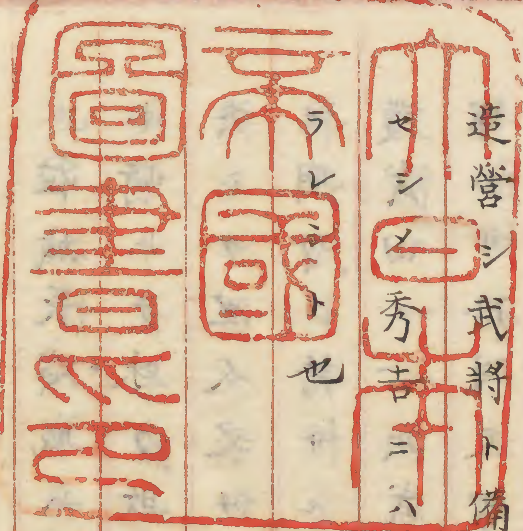 造營シ武將ト備
セシメ秀吉ニハ
ラレシト也
大日本
帝國
圖書印